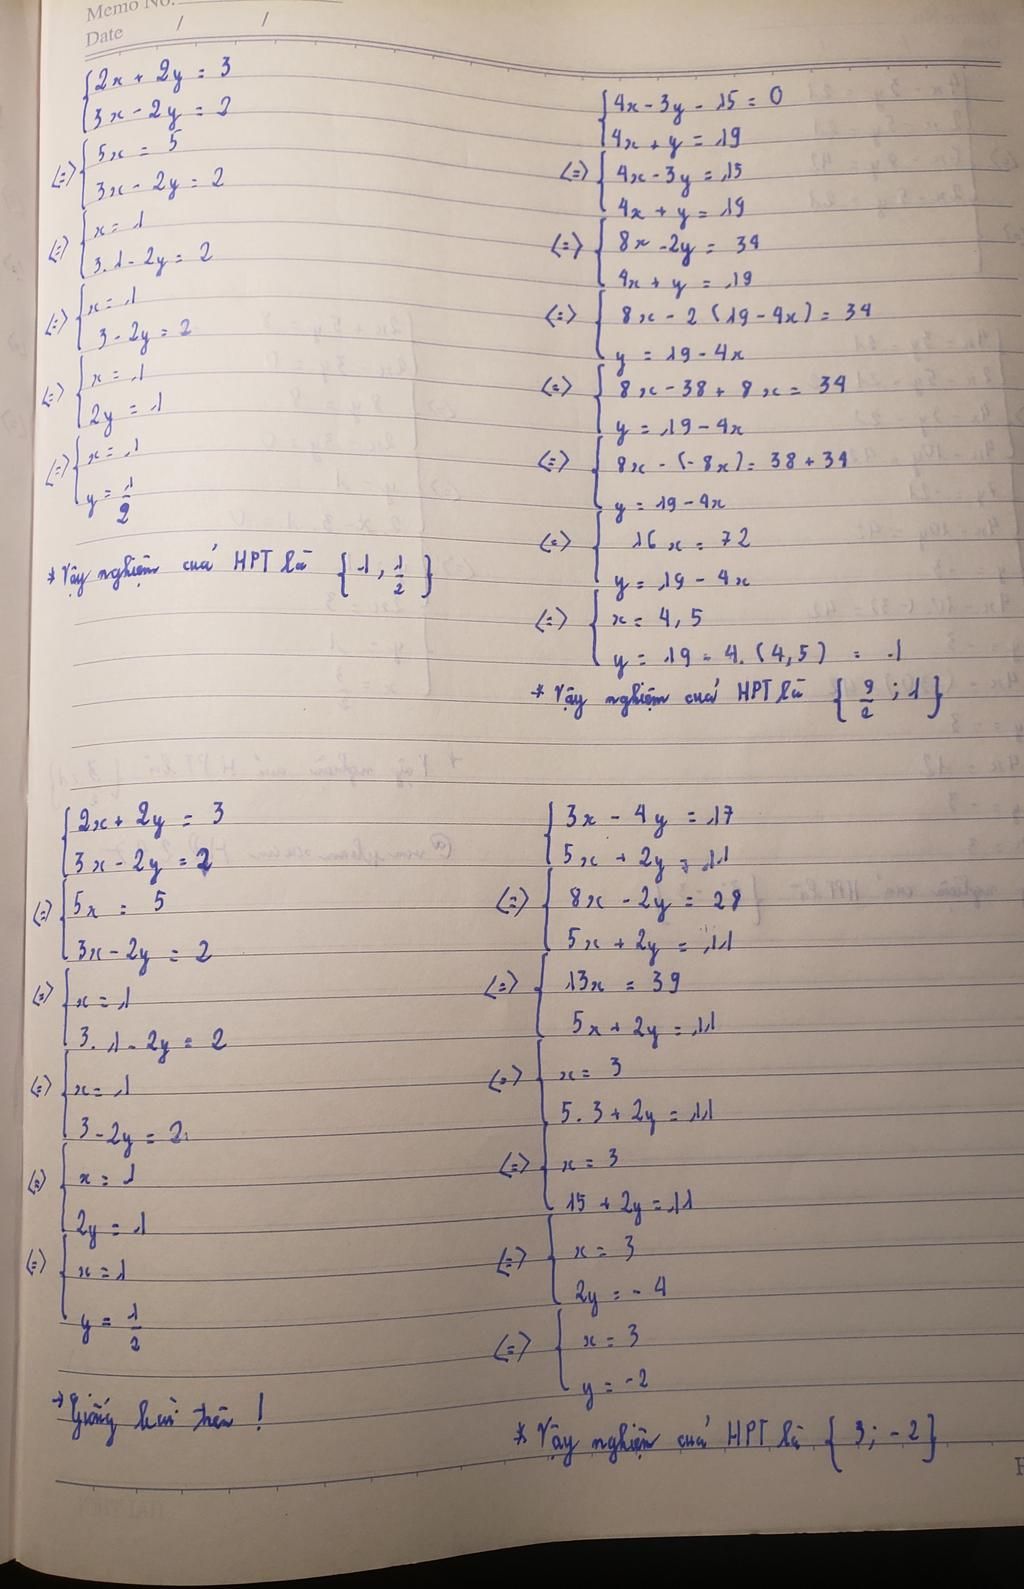 Memo No.
Date / /
2x + 2y = 3
3x - 2y = 2
(=) 5x = 5
3x - 2y = 2
(=) x = 1
3.1 - 2y = 2
(=) x = 1
3 - 2y = 2
(=) x = 1
2y = 1
(=) x = 1
y = 1/2
* Vậy nghiệm cuả HPT là {1, 1/2}
4x - 3y - 15 = 0
4x + y = 19
(=) 4x - 3y = 15
4x + y = 19
(=) 8x - 2y = 34
4x + y = 19
(=) 8x - 2 (19 - 4x) = 34
y = 19 - 4x
(=) 8x - 38 + 8x = 34
y = 19 - 4x
(=) 8x - (-8x) = 38 + 34
y = 19 - 4x
(=) 16x = 72
y = 19 - 4x
(=) x = 4,5
y = 19 - 4.(4,5) = 1
* Vậy nghiệm cuả HPT là {9/2 ; 1}
2x + 2y = 3
3x - 2y = 2
(=) 5x = 5
3x - 2y = 2
(=) x = 1
3.1 - 2y = 2
(=) x = 1
3 - 2y = 2
(=) x = 1
2y = 1
(=) x = 1
y = 1/2
→ Giống bài trên !
3x - 4y = 17
5x + 2y = 11
(=) 8x - 2y = 28
5x + 2y = 11
(=) 13x = 39
5x + 2y = 11
(=) x = 3
5.3 + 2y = 11
(=) x = 3
15 + 2y = 11
(=) x = 3
2y = -4
(=) x = 3
y = -2
* Vậy nghiệm cuả HPT là {3; -2}